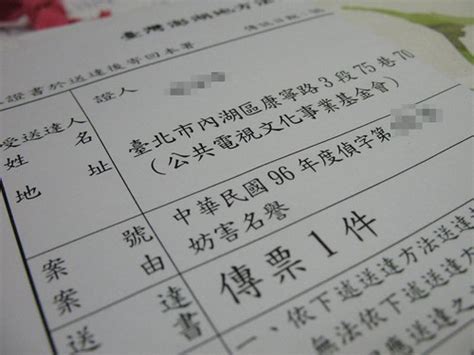 臺灣澎湖地方法
證書於送達後寄回本署
受送達人
姓名
地址
證人
臺北市內湖區康寧路3段75巷70
(公共電視文化事業基金會)
案號
中華民國96年度偵字第
案由
妨害名譽
送達
書
傳票1件
一、依下述送達方法送達
無法依下述送達
應送達之